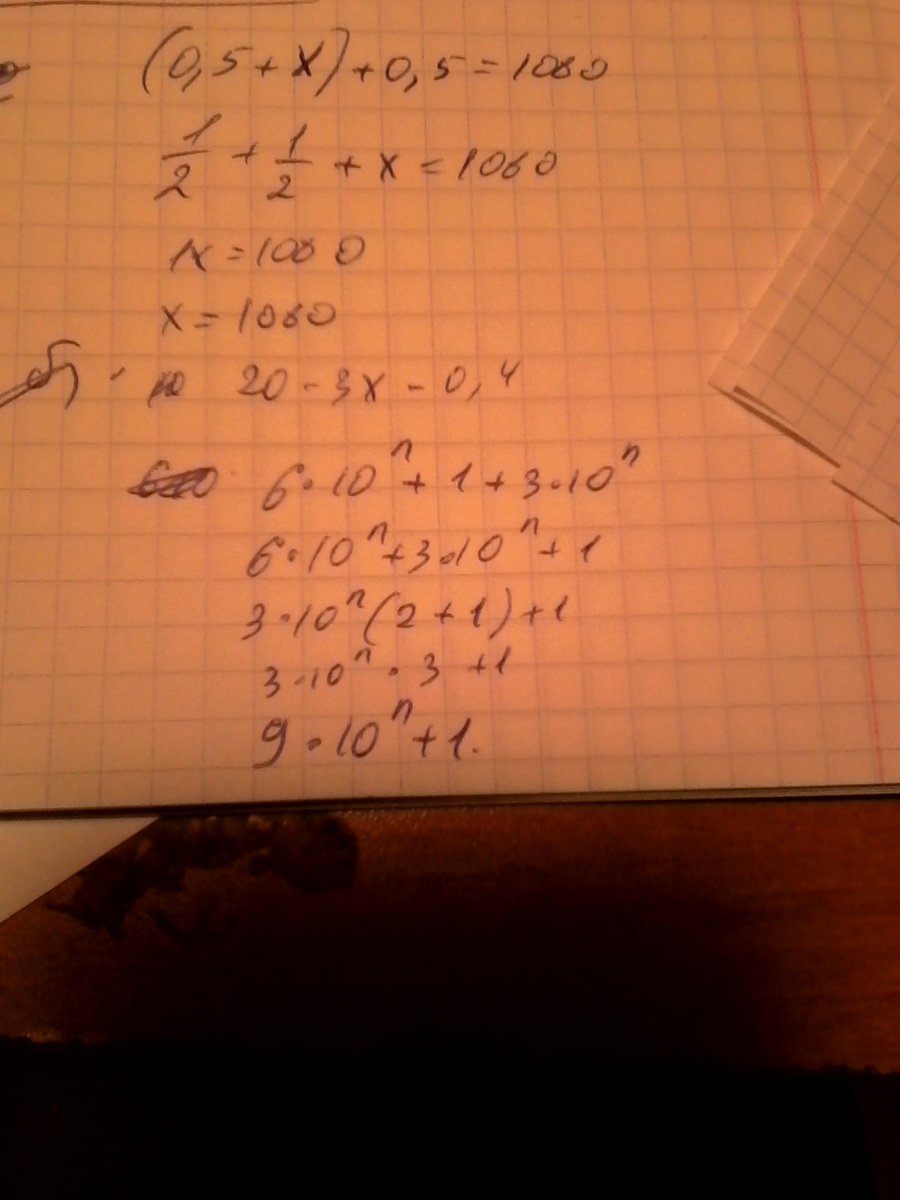 (0,5 + x) + 0,5 = 1060
1/2 + 1/2 + x = 1060
1x = 1060
x = 1060
б) 20 - 3x - 0,4
6·10ⁿ + 1 + 3·10ⁿ
6·10ⁿ + 3·10ⁿ + 1
3·10ⁿ(2 + 1) + 1
3·10ⁿ · 3 + 1
9·10ⁿ + 1.